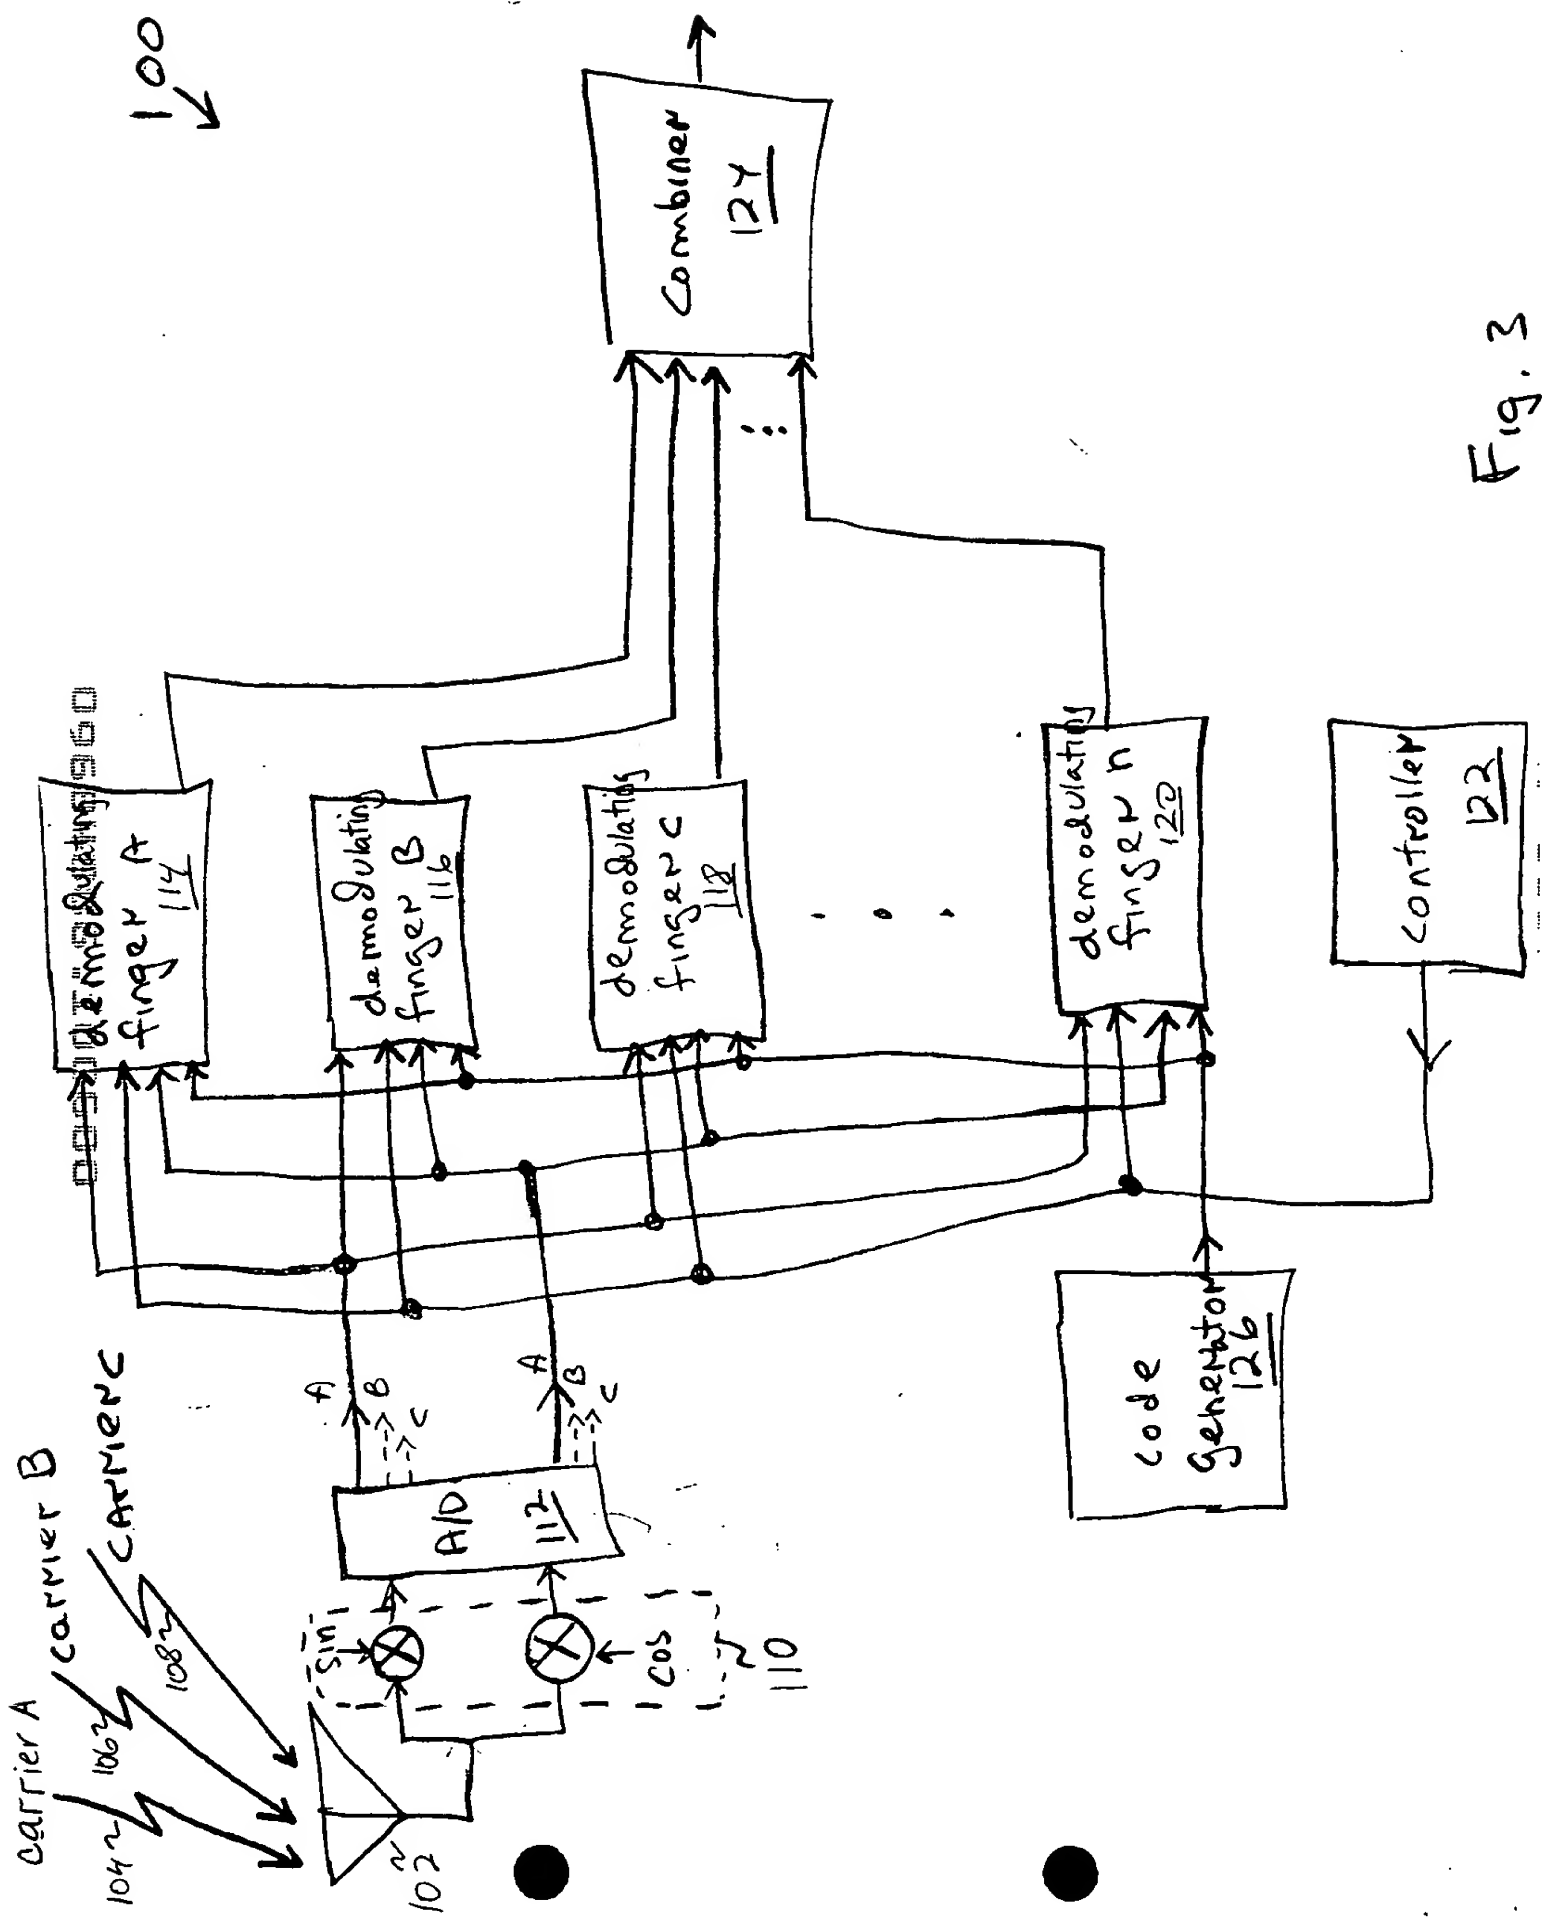 100
carrier A
carrier B
carrier C
104
106
108
102
sin
cos
110
A/D
112
A
B
C
A
B
C
demodulating
finger A
114
demodulating
finger B
116
demodulating
finger C
118
demodulating
finger n
120
Combiner
124
code
generator
126
controller
122
Fig. 3